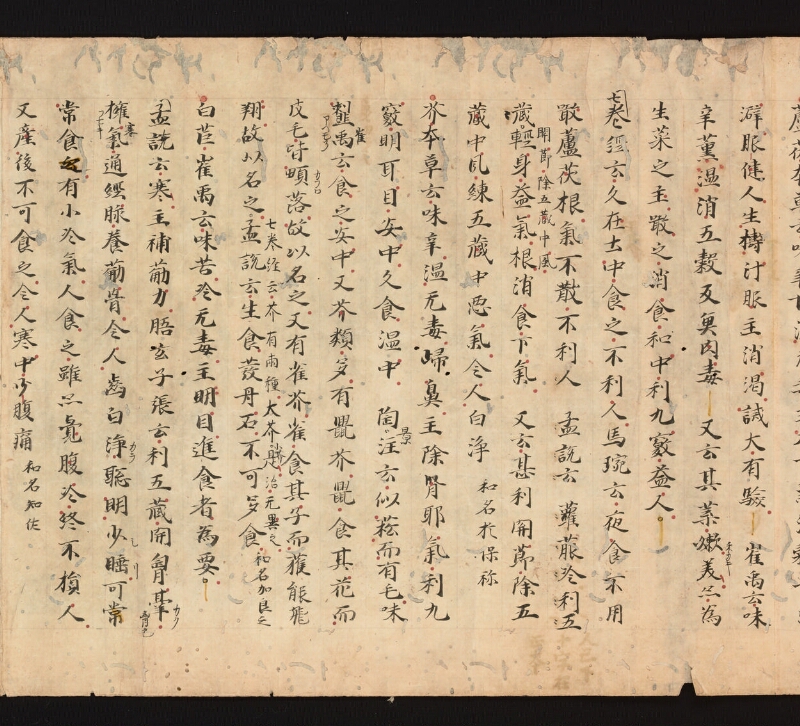 澼服健人生擣汁服主消渇試大有驗 崔禹云味
辛薫温消五穀及魚肉毒 又云其菜嫩美亦為
生菜之主散之消食和中利九竅益人
七巻經云久在土中食之不利人馬琬云夜食不用
散蘆茯根氣不散不利人 孟詵云 蘿菔冷利五
開節除五蔵中風
蔵輕身益氣根消食下氣 又云甚利開節除五
蔵中風練五蔵中悪氣令人白淨 和名於保祢
芥本草云味辛温无毒歸鼻主除腎耶氣利九
竅明耳目安中久食温中 陶景注云似菘而有毛味
崔禹云食之安中又芥類多有鼠芥鼠食其花而
皮毛皆𩒹落故以名之又有雀芥雀食其子而獲能飛
翔故以名之孟詵云生食發丹石不可多食
七巻經云芥有兩種大芥小芥治元異之 和名加良之
白苣崔禹云味苦冷无毒主明目進食者為要
孟詵云寒主補筋力 悟玄子張云利五蔵開胷
擁氣通經脉養筋骨令人齒白淨聡明少睡可常
常食之有小冷氣人食之雖亦覺腹冷終不損人
又産後不可食之令人寒中少腹痛 和名知佐